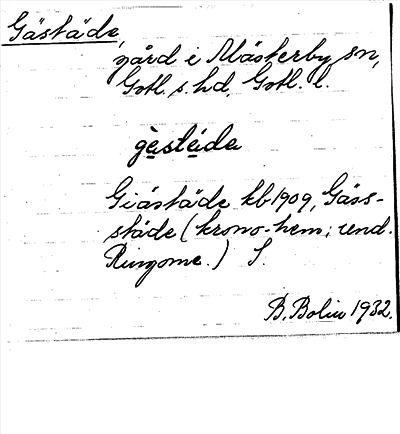 Gästäde,
gård i Mästerby sn,
Gotl. s. hd, Gotl. l.
gèstéde
Giästäde kb 1909, Gäss-
städe (krono-hem; und.
Ringome.) S.
B. Bolin 1932.